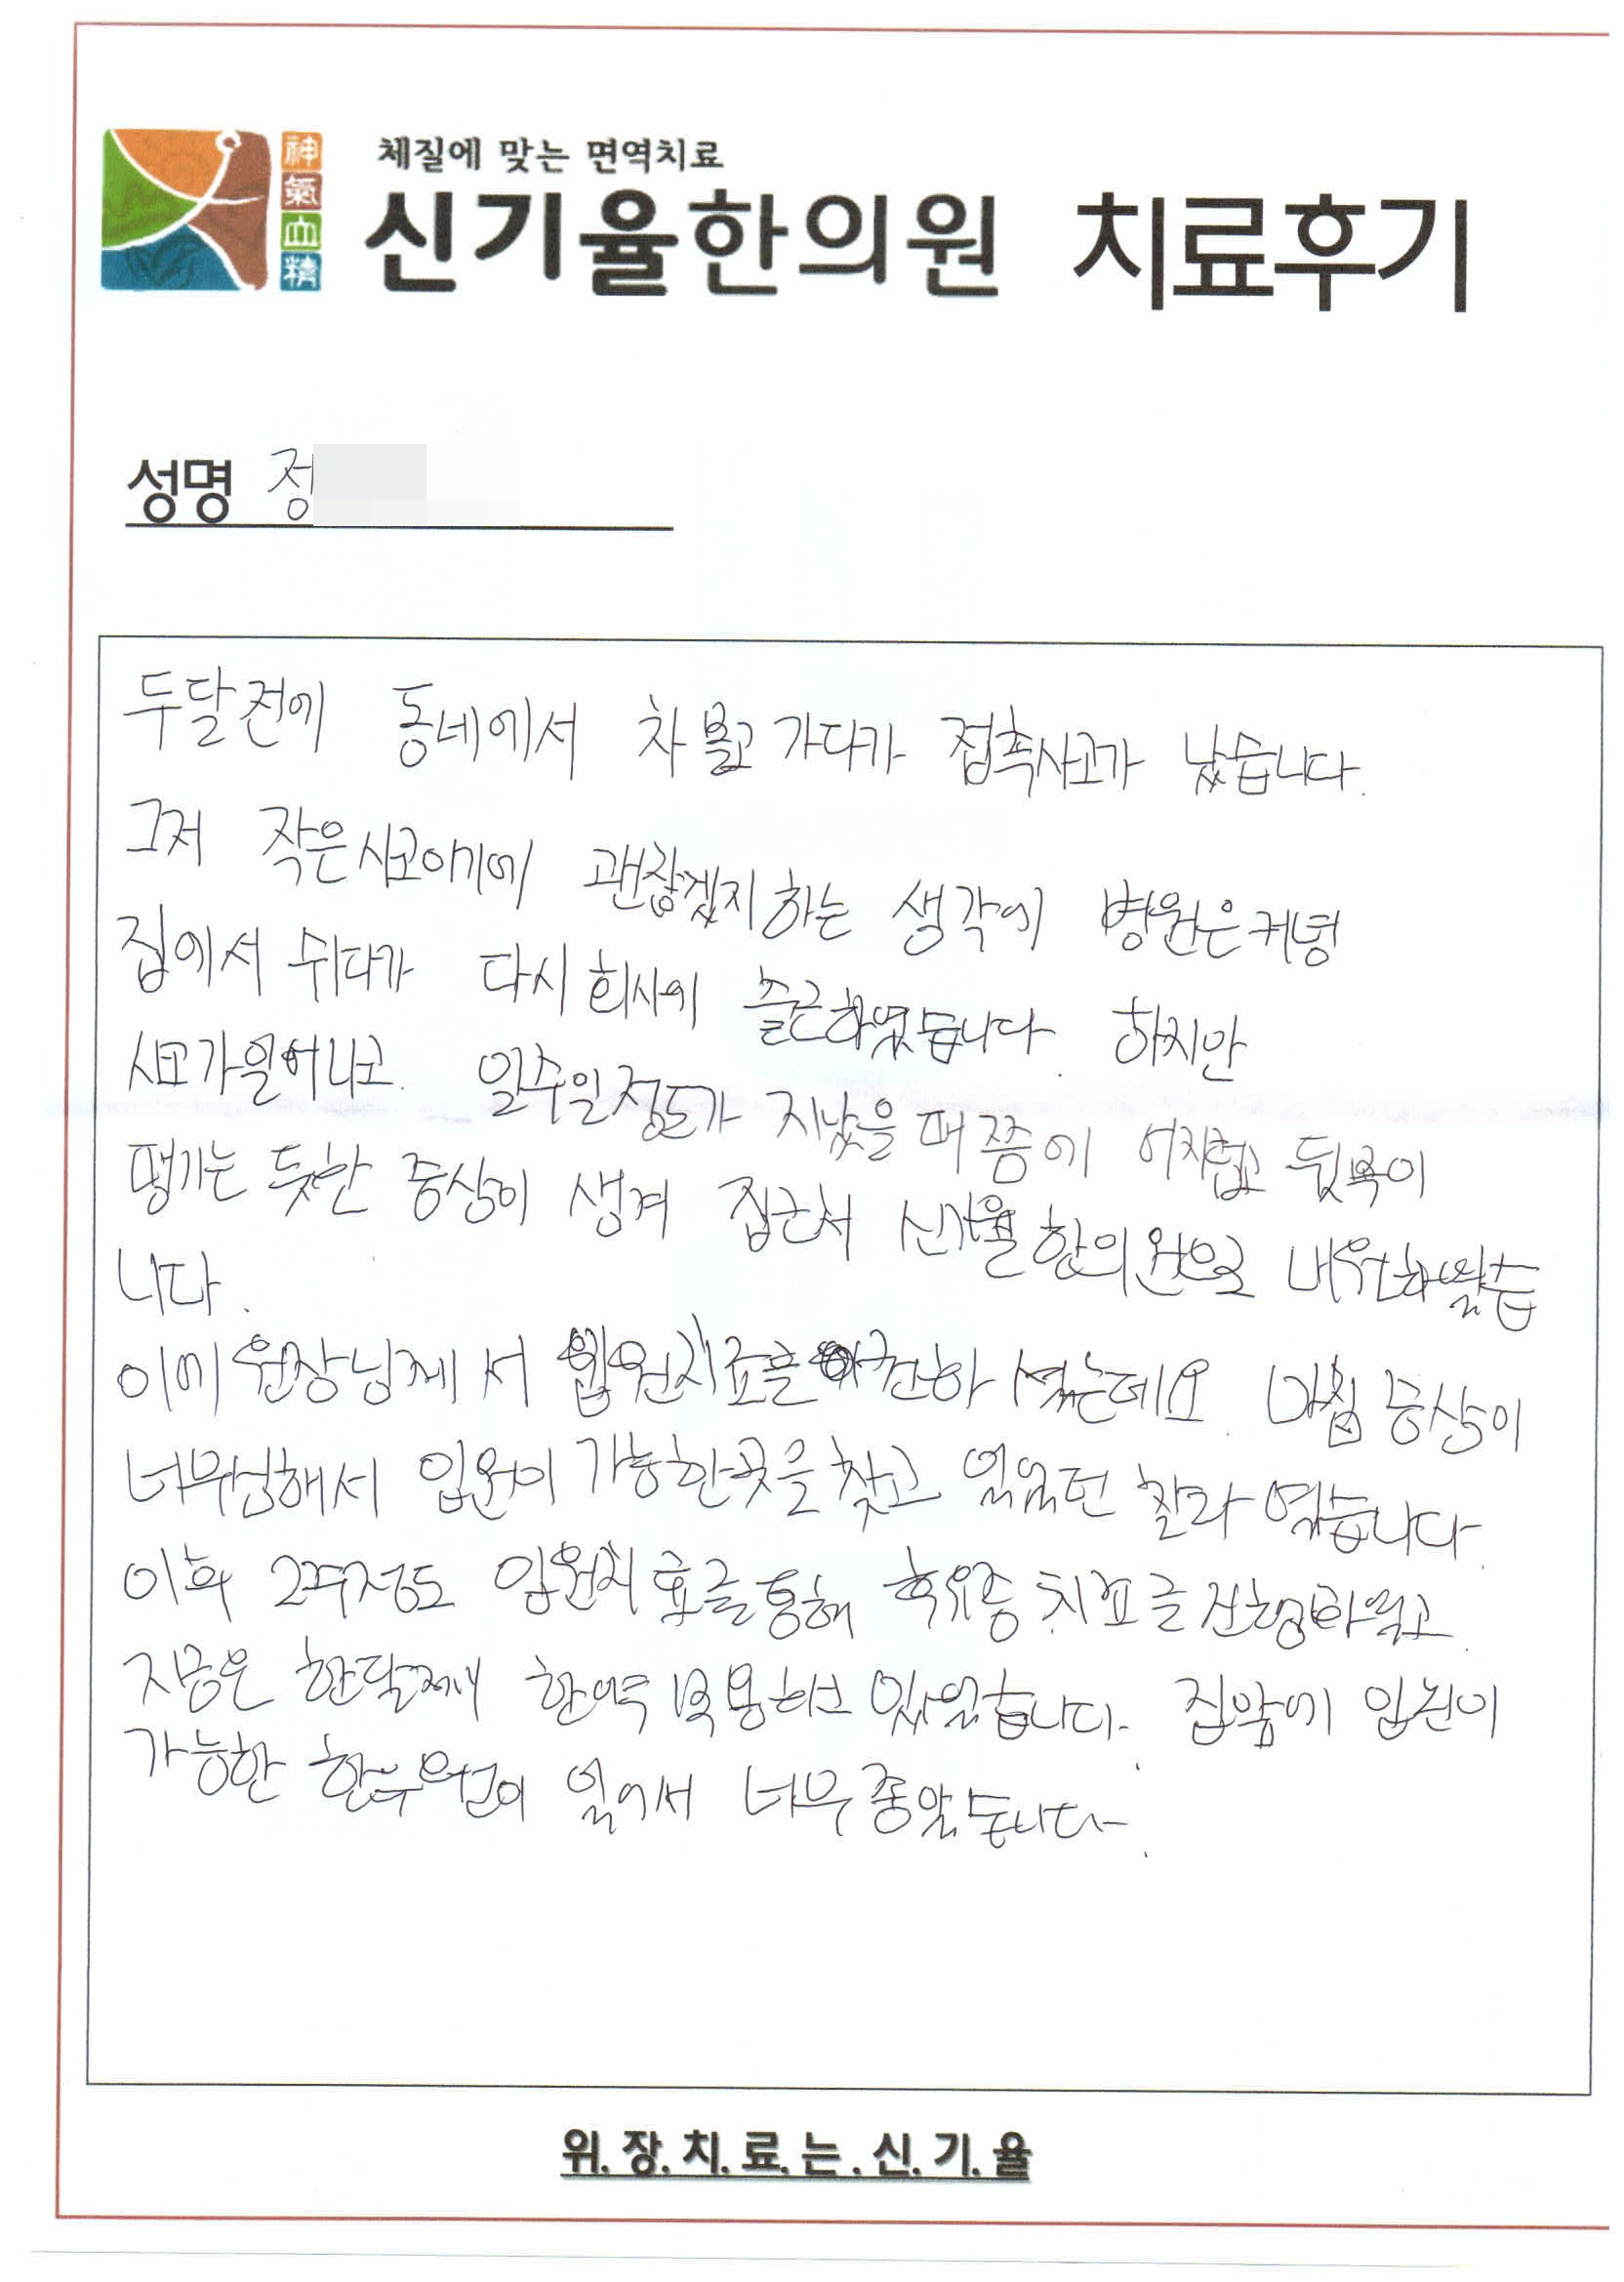 神氣血精
체질에 맞는 면역치료
신기율한의원 치료후기
성명 정
두달전에 동네에서 차 몰고 가다가 접촉사고가 났습니다.
그저 작은사고이기에 괜찮겠지하는 생각에 병원은커녕
집에서 쉬다가 다시 회사에 출근하였습니다. 하지만
사고가일어나고 일주일정도가 지났을때쯤에 어지럽고 뒷목이
땡기는 듯한 증상이 생겨 집근처 신기율한의원으로 내원하였습
니다.
이에 원장님께서 입원치료를 권하셨는데요 마침 증상이
너무심해서 입원이 가능한곳을 찾고 있었던 찰라였습니다.
이후 2주정도 입원치료를통해 후유증 치료를 진행하였고
지금은 한달째 한약 복용하고 있었습니다. 집앞에 입원이
가능한 한의원이 있어서 너무좋았습니다.
위.장.치.료.는.신.기.율